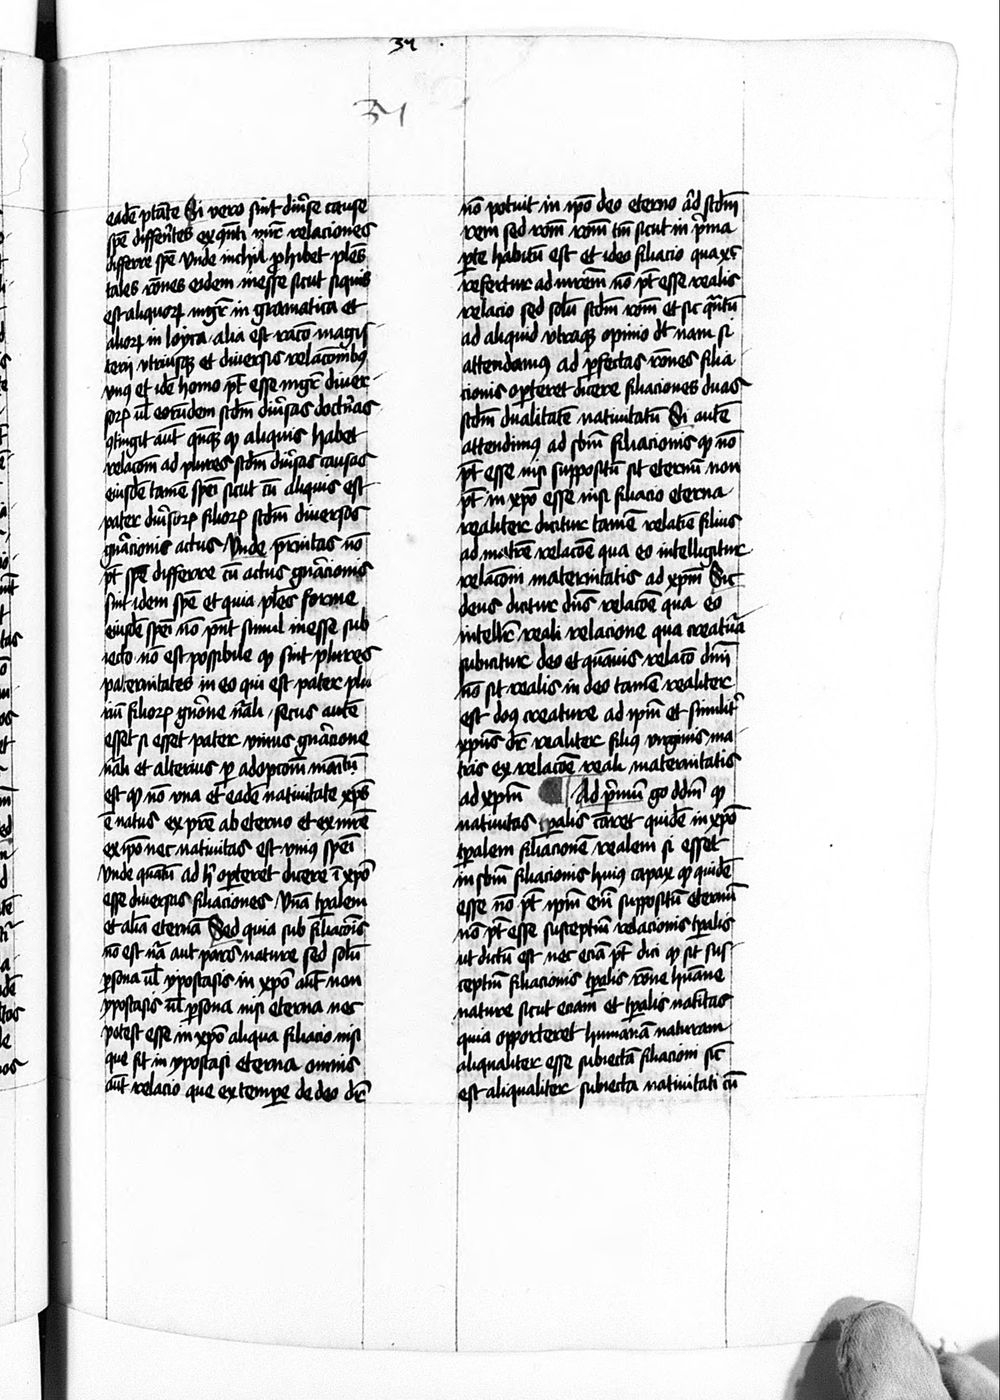 34
34
eadē ptāte Si vero sint diuˀse cause
spē differētes ex q̄nti vnīr relaciones
differre spē vnde nichil prohibet ples
tales rōnes eidem inesse sicut siquis
est aliquorꝝ mgr̄ in gramatica et
aliorꝝ in loyca alia est racō magis
terii vtriusqꝫ et diuersis relacōnibꝰ
vnꝰ et idē homo pt̄ esse mgr̄ diuer
sorꝝ ul̄ eorūdem scdm̄ diuˀsas doctrīas
ꝯtingit aūt qn̄qꝫ ꝙ aliquis habet
relacōm ad plures scdm̄ diuˀsas causas
eiusdē tamē spēi sicut cū aliquis est
pater diuˀsorꝝ filiorꝝ scdm̄ diuersos
gnˀacionis actus Vnde pr̄nitas nō
pt̄ spē differre cū actus gnˀacionis
sint idem spē et quia ples forme
eiusdē spēi nō pn̄t simul inesse sub
iecto nō est possibile ꝙ sint plures
paternitates in eo qui est pater plu
riū filiorꝝ gnˀone nāli secus autē
esset si esset pater vnius gnˀacione
nāli et alterius ꝑ adopcōm
est ꝙ nō vna et eadē natiuitate xp̄s
ē natus ex pr̄e ab eterno et ex mr̄e
ex tpo nec natiuitas est vniꝰ spēi
Vnde quātū ad hˀ oporteret dicere ī xp̄o
esse diuersas filiaciones Vnā tp̄alem
et aliā eternā Sed quia sub filiacōis
nō est nā aut pars nature sed solū
ꝑsona ul̄ ypostasis in xp̄o aūt non
ypostasis ul̄ ꝑsona nisi eterna nec
potest esse in xp̄o aliqua filiacio nisi
que sit in ypostasi eterna omnis
aūt relacio que ex tempe de deo dr̄
nō potuit in ipo deo eterno ad scdm̄
rem sed rōm rōm tm̄ sicut in pˀma
ꝑte habitū est et ideo filiacio qua xꝰ
refertur ad mr̄em nō pt̄ esse realis
relacio sed solū scdm̄ rōm et sic quātū
ad aliquid vtraqꝫ opinio dt̄ nam si
attendamꝰ ad ꝑfectas rōnes filia
cionis oꝑteret dicere filiaciones duas
scdm̄ dualitatē natiuitatū Si autē
attendimꝰ ad sbm̄ filiacionis ꝙ nō
pt̄ esse nisi suppositū sit eternū non
pt̄ in xp̄o esse nisi filiacio eterna
realiter dicitur tamē relatē filius
ad matrē relacōe qua eo intelligitur
relacōm maternitatis ad xpm̄ Sic
deus dicitur dn̄s relacōe qua eo
intellr̄ reali relacione qua creatuˀa
subicitur deo et quāuis relacō dnīj
nō sit realis in deo tamē realiter
est dn̄s creature ad ipm̄ et similitˀ
xp̄us dr̄ realiter filiꝰ virginis ma
tris ex relacōe reali maternitatis
ad xpm̄ Ad pˀmū go ddm̄ ꝙ
natiuitas tp̄alis cāret quidē in xp̄o
tp̄alem filiacionē realem si esset
in sbm̄ filiacionis huiꝰ capax ꝙ quidē
esse nō pt̄ ipm̄ em̄ suppositū eternū
nō pt̄ esse susceptiū relacionis tp̄alis
ut dictū est nec eciā pt̄ dici ꝙ sit sus
ceptiū filiacionis tp̄alis rōne hūane
nature sicut eciam et tp̄alis natitas
quia opporteret humanā naturam
aliqualiter esse subiectā filiacioni sic̄
est aliqualiter subiecta natiuitati cū